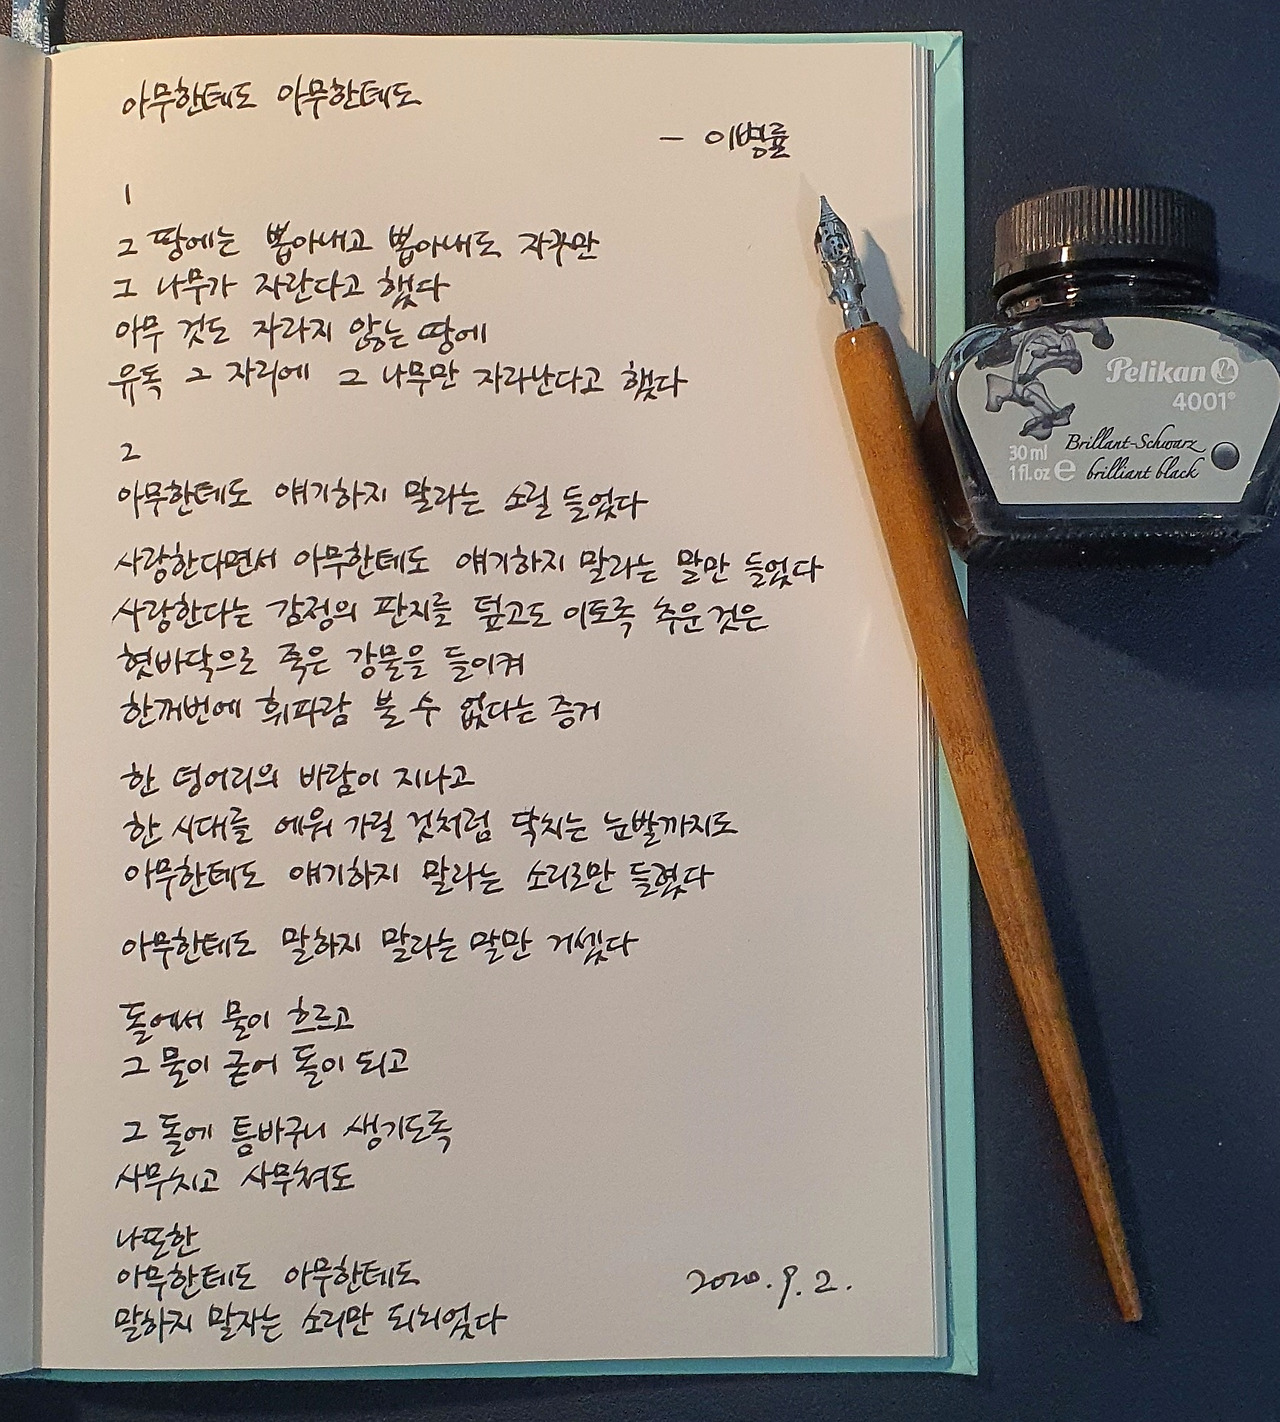 아무한테도 아무한테도
- 이병률
1
그 땅에는 뽑아내고 뽑아내도 자꾸만
그 나무가 자란다고 했다
아무 것도 자라지 않는 땅에
유독 그 자리에 그 나무만 자라난다고 했다
2
아무한테도 얘기하지 말라는 소릴 들었다
사랑한다면서 아무한테도 얘기하지 말라는 말만 들었다
사랑한다는 감정의 판지를 덮고도 이토록 추운 것은
혓바닥으로 죽은 강물을 들이켜
한꺼번에 휘파람 불 수 없다는 증거
한 덩어리의 바람이 지나고
한 시대를 에워 가릴 것처럼 닥치는 눈발까지도
아무한테도 얘기하지 말라는 소리로만 들렸다
아무한테도 말하지 말라는 말만 거셌다
돌에서 물이 흐르고
그 물이 굳어 돌이 되고
그 돌에 틈바구니 생기도록
사무치고 사무쳐도
나또한
아무한테도 아무한테도
말하지 말자는 소리만 되뇌었다
2020. 9. 2.
Pelikan
4001®
30 ml
1 fl. oz ℮
Brillant-Schwarz
brilliant black